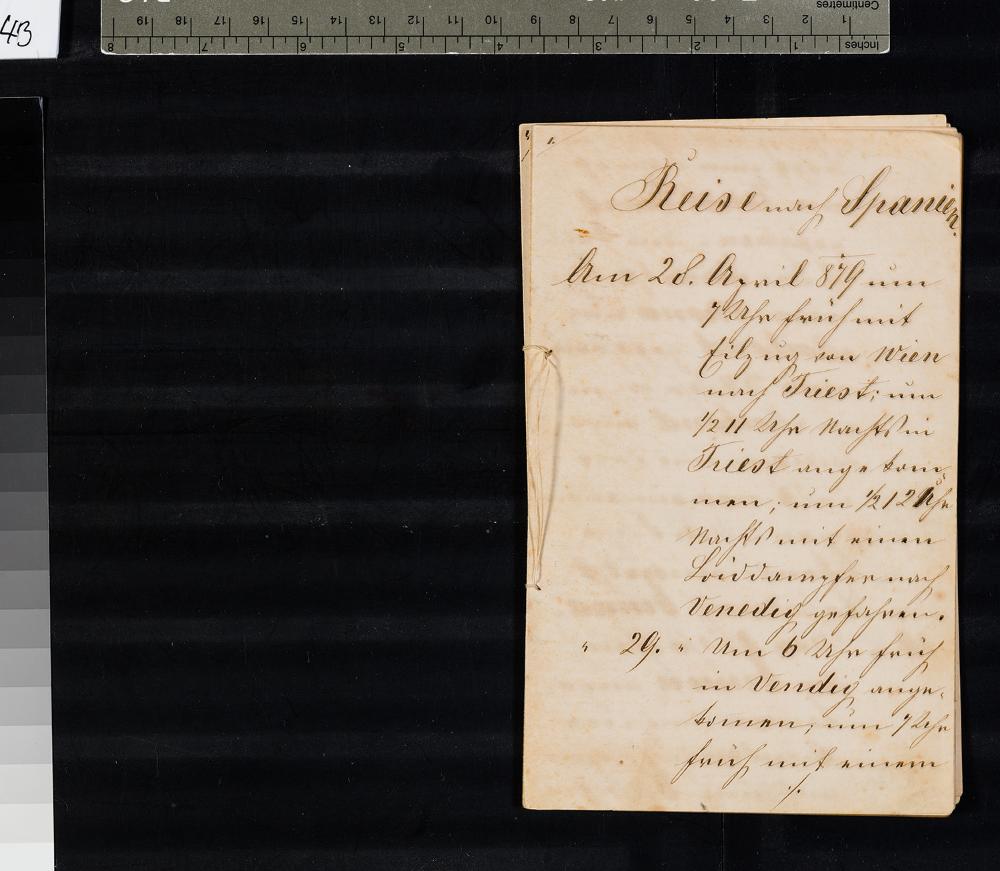 43
Centimetres
1 2 3 4 5 6 7 8 9 10 11 12 13 14 15 16 17 18 19
Inches
1 2 3 4 5 6 7 8
Reise nach Spanien.
Am 28. April 879 um
7 Uhr früh mit
Eilzug von Wien
nach Triest; um
1/2 11 Uhr Nachts in
Triest angekom-
men; um 1/2 12 Uhr
Nachts mit einen
Loiddampfer nach
Venedig gefahren.
" 29. " Um 6 Uhr früh
in Vendig ange-
komen; um 7 Uhr
früh mit einem
./.